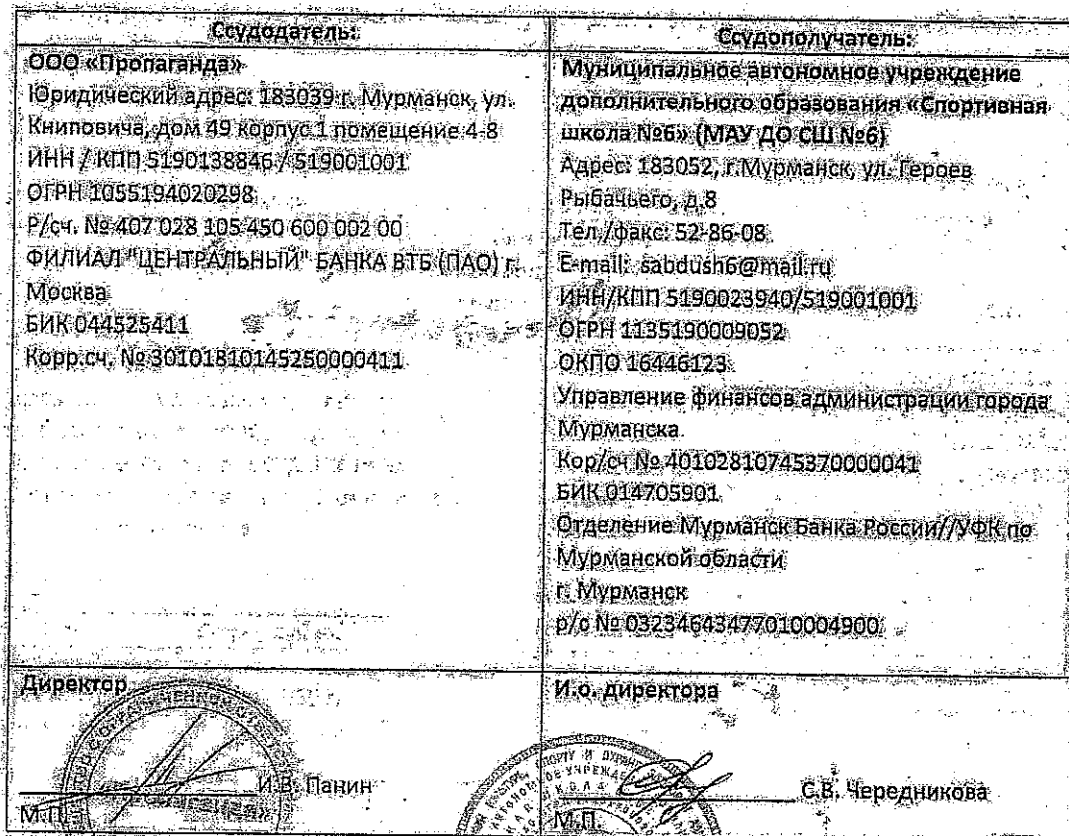 Ссудодатель:
ООО «Пропаганда»
Юридический адрес: 183039 г. Мурманск, ул.
Книповича, дом 49 корпус 1 помещение 4-8
ИНН / КПП 5190138846 / 519001001
ОГРН 1055194020298
Р/сч. № 407 028 105 450 600 002 00
ФИЛИАЛ "ЦЕНТРАЛЬНЫЙ" БАНКА ВТБ (ПАО) г.
Москва
БИК 044525411
Корр.сч. № 30101810145250000411
Ссудополучатель:
Муниципальное автономное учреждение
дополнительного образования «Спортивная
школа №6» (МАУ ДО СШ №6)
Адрес: 183052, г.Мурманск, ул. Героев
Рыбачьего, д.8
Тел./факс: 52-86-08
E-mail: sabdush6@mail.ru
ИНН/КПП 5190023940/519001001
ОГРН 1135190009052
ОКПО 16446123
Управление финансов администрации города
Мурманска
Кор/сч № 40102810745370000041
БИК 014705901
Отделение Мурманск Банка России//УФК по
Мурманской области
г. Мурманск
р/с № 03234643477010004900
Директор
И.В. Панин
М.П.
И.о. директора
С.В. Чередникова
М.П.